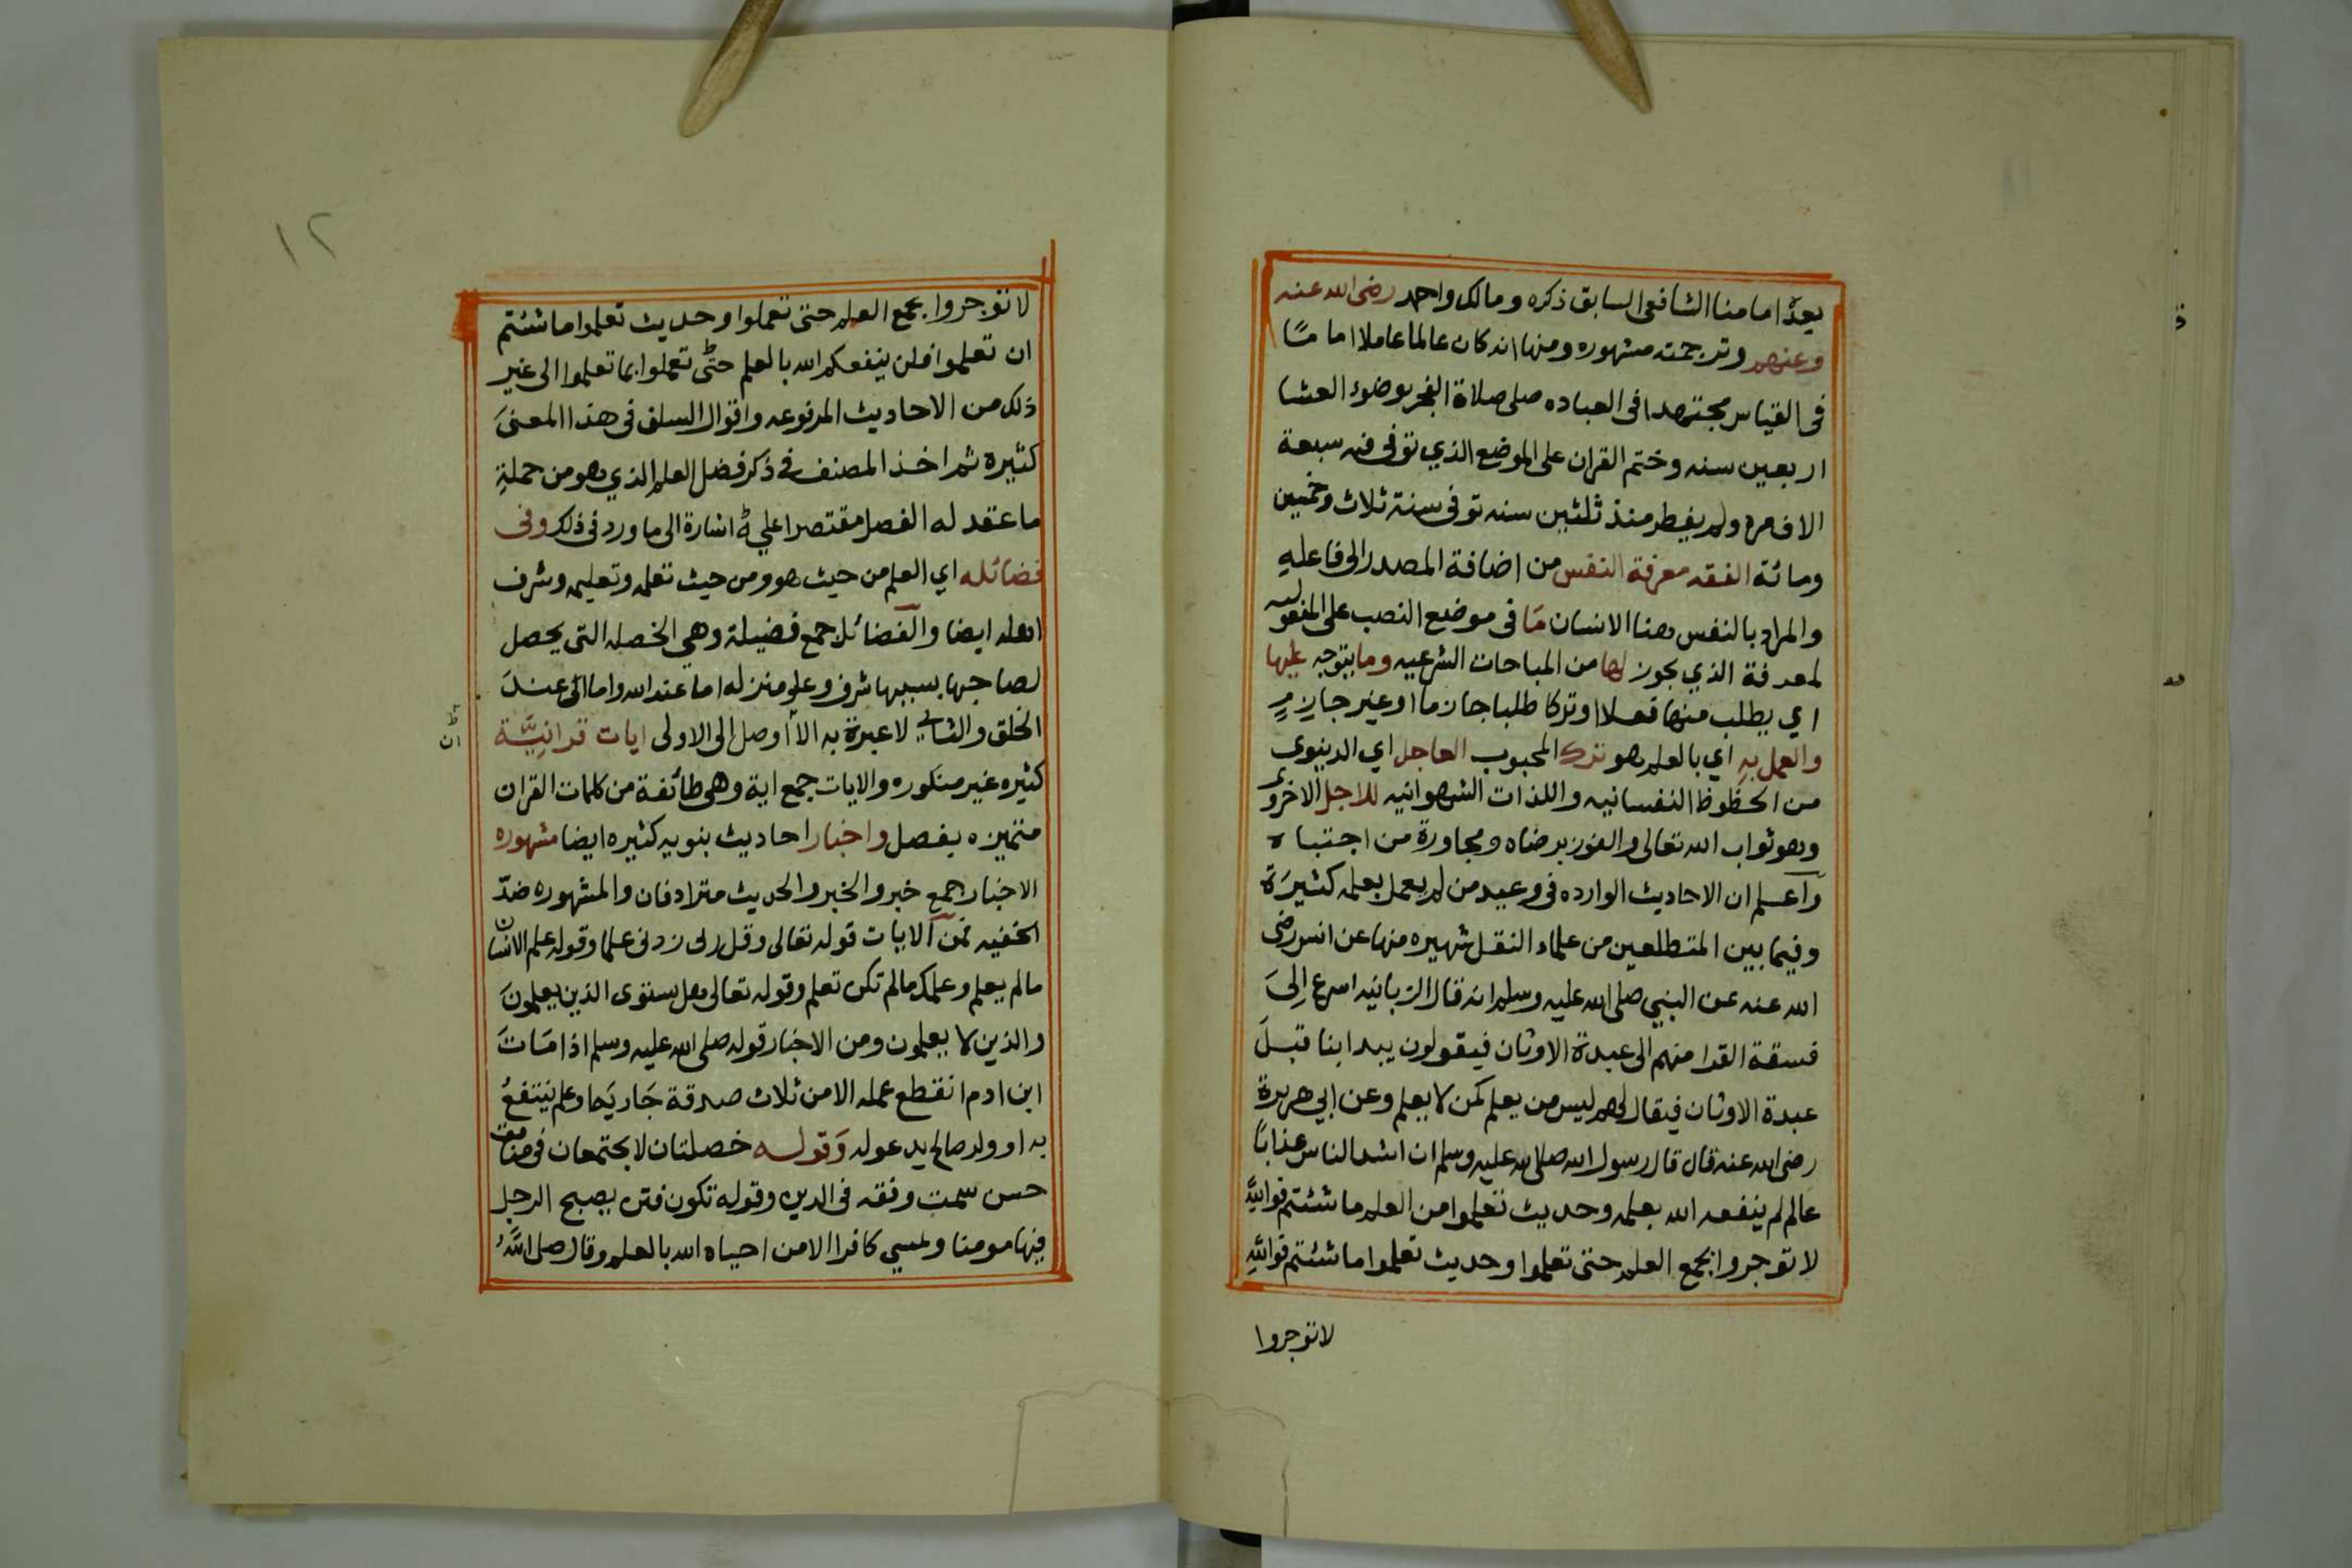 بعده امامنا الشافعى السابق ذكره ومالك واحمد رضى الله عنه
وعنهم وترجمته مشهوره ومنها انه كان عالما عاملا اماما
فى القياس مجتهدا فى العباده صلى صلاة الفجر بوضوء العشا
اربعين سنه وختم القران على الموضع الذي توفى فيه سبعة
الاف مره ولم يفطر منذ ثلثين سنه توفى سنة ثلاث وخمسين
ومائة الفقه معرفة النفس من اضافة المصدر الى فاعله
والمراد بالنفس هنا الانسان مَا فى موضع النصب على المفعوليه
لمعرفة الذي يجوز لها من المباحات الشرعيه وما يتوجه عليها
اي يطلب منها فعلا اوتركا طلبا جازما او غير جازمٍ
والعمل بهِ اي بالعلم هو ترك المحبوب العاجل اي الدنيوى
من الحظوظ النفسانيه واللذات الشهوانيه للاجل الاخروى
وهو ثواب الله تعالى والفوز برضاه ومجاورة من اجتباه
وآعلم ان الاحاديث الوارده فى وعيد من لم يعمل بعلمه كثيرَة
وفيما بين المتطلعين من علماء النقل شهيره منها عن انس رضى
الله عنه عن النبي صلى الله عليه وسلم انه قال الزبانيه اسرع اِلىَ
فسقة القرا منهم الى عبدة الاوثان فيقولون يبدا بنا قبلَ
عبدة الاوثان فيقال لهم ليس من يعلم كمن لا يعلم وعن ابي هريرة
رضى الله عنه قال قال رسول الله صلى الله عليه وسلم ان اشد الناس عذابًا
عالم لم ينفعه الله بعلمه وحديث تعلموا من العلم ما شئتم فوالله
لا توجروا بجمع العلم حتى تعلموا وحديث تعلموا ما شئتم فواللهِ
لا توجروا
١٢
لا توجروا بجمع العلم حتى تعملوا وحديث تعلموا ما شئتم
ان تعلموا فلن ينفعكم الله بالعلم حتّى تعملوا بما تعلموا الى غير
ذلك من الاحاديث المرفوعه واقوال السلف فى هذا المعنىَ
كثيره ثم اخذ المصنف فى ذكر فضل العلم الذي هو من جملةِ
ما عقد له الفصل مقتصرا على اشارة الى ما ورد فى ذلك وفى
فضائله اي العلم من حيث هو ومن حيث تعلمه وتعليمه وشرف
اهله ايضا والفضائل جمع فضيلة وهي الخصله التى يحصل
لصاحبها بسببها شرف وعلو منزله اما عند الله واما الى عندَ
الخلق والثاني لا عبرة به الا اوصل الى الاولى ايات قرانيَّة
ان
كثيره غير منكوره والايات جمع اية وهى طائفة من كلمات القران
متميزه بفصل واخبار احاديث نبويه كثيره ايضا مشهوره
الاخبار جمع خبر والخبر والحديث مترادفان والمشهوره ضدّ
الخفيه فمن آلايات قوله تعالى وقل ربى زدنى علما وقوله علم الانسان
مالم يعلم وعلمك مالم تكن تعلم وقوله تعالى هل يستوى الذين يعلمونَ
والذين لا يعلمون ومن الاخبار قوله صلى الله عليه وسلم اذا مَاتَ
ابن ادم انقطع عمله الا من ثلاث صدقة جَاريَه او علم ينتفعُ
به او ولد صالح يدعوله وَقوله خصلتان لا يجتمعان فى منافق
حسن سمت وفقه فى الدين وقوله تكون فتن يصبح الرجل
فيها مومنا ويمسي كافرا الا من احياه الله بالعلم وقال صلى اللهُ